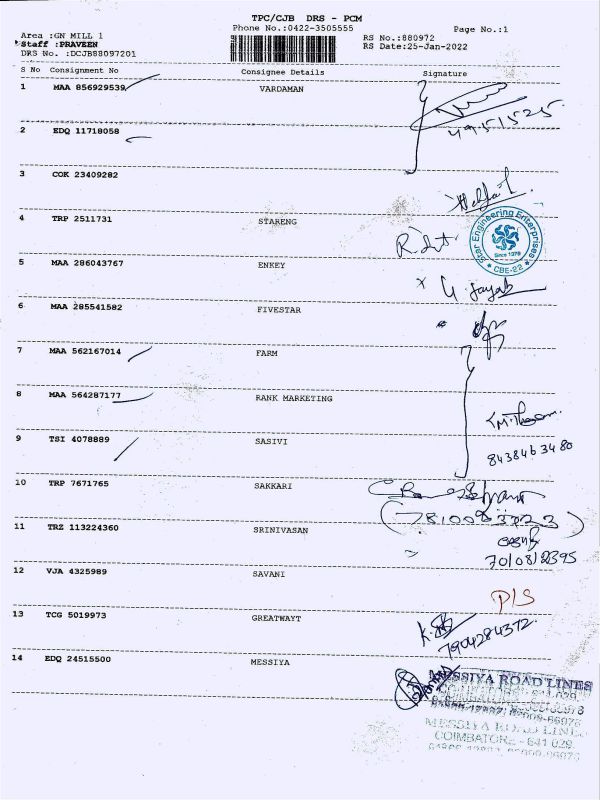 TPC/CJB DRS - PCM
Phone No.:0422-3505555
Page No.:1
Area :GN MILL 1
Staff :PRAVEEN
DRS No. :DCJB88097201
RS No.:880972
RS Date:25-Jan-2022
S No Consignment No Consignee Details Signature
1 MAA 856929539 VARDAMAN
2 EDQ 11718058
3 COK 23409282
4 TRP 2511731 STARENG
Star Engineering Enterprises
Since 1978
CBE-22
5 MAA 286043767 ENKEY
6 MAA 285541582 FIVESTAR
7 MAA 562167014 FARM
8 MAA 564287177 RANK MARKETING
9 TSI 4078889 SASIVI
8438463480
10 TRP 7671765 SAKKARI
11 TRZ 113224360 SRINIVASAN
12 VJA 4325989 SAVANI
P/S
13 TCG 5019973 GREATWAYT
7904284372
14 EDQ 24515500 MESSIYA
MESSIYA ROAD LINES
COIMBATORE - 641 029.
MESSIYA ROAD LINES
COIMBATORE - 641 029.